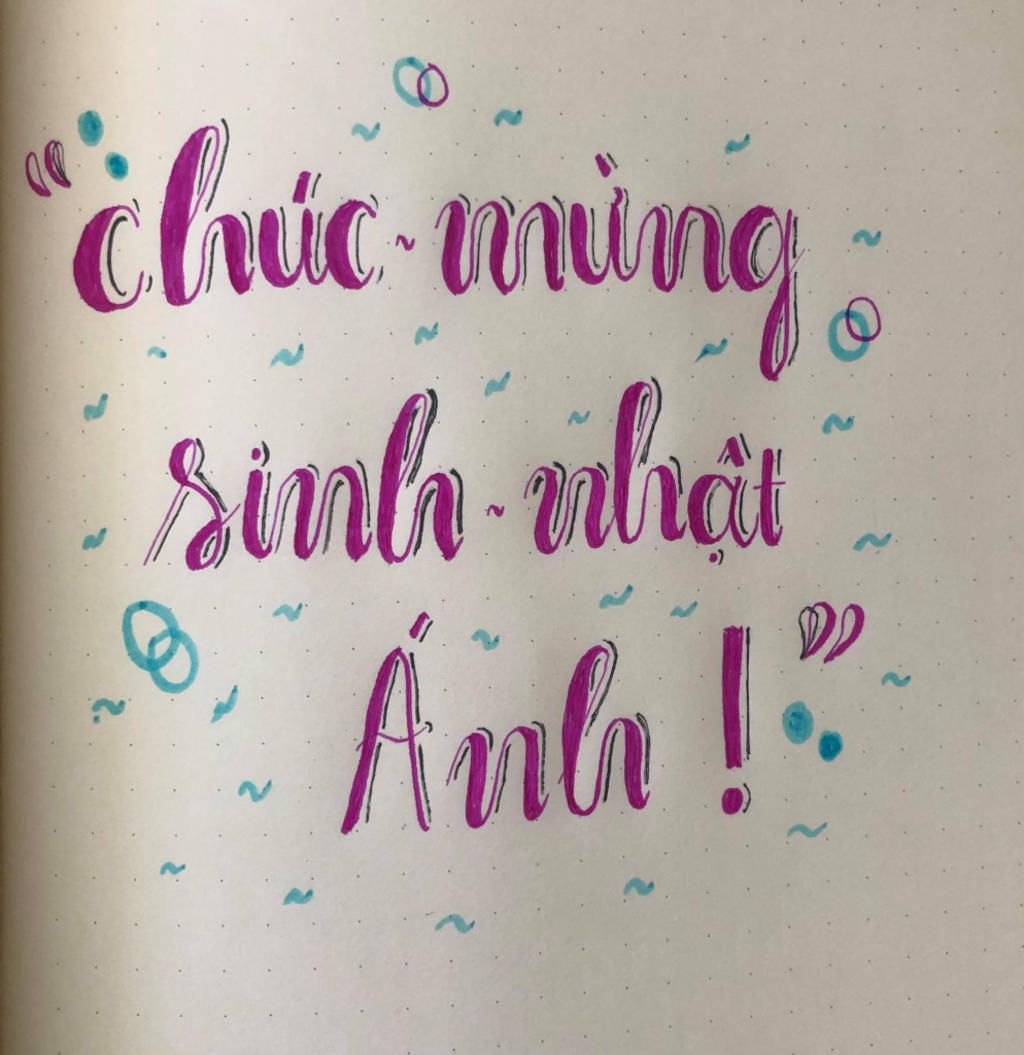 “chúc ~ mừng
sinh ~ nhật
Ánh !”